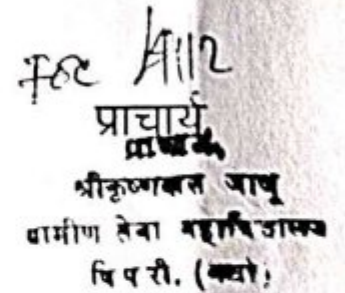 For
प्राचार्य
प्राचार्य,
श्रीकृष्णदास जाजू
ग्रामीण सेवा महाविद्यालय
पिपरी. (वर्धा)